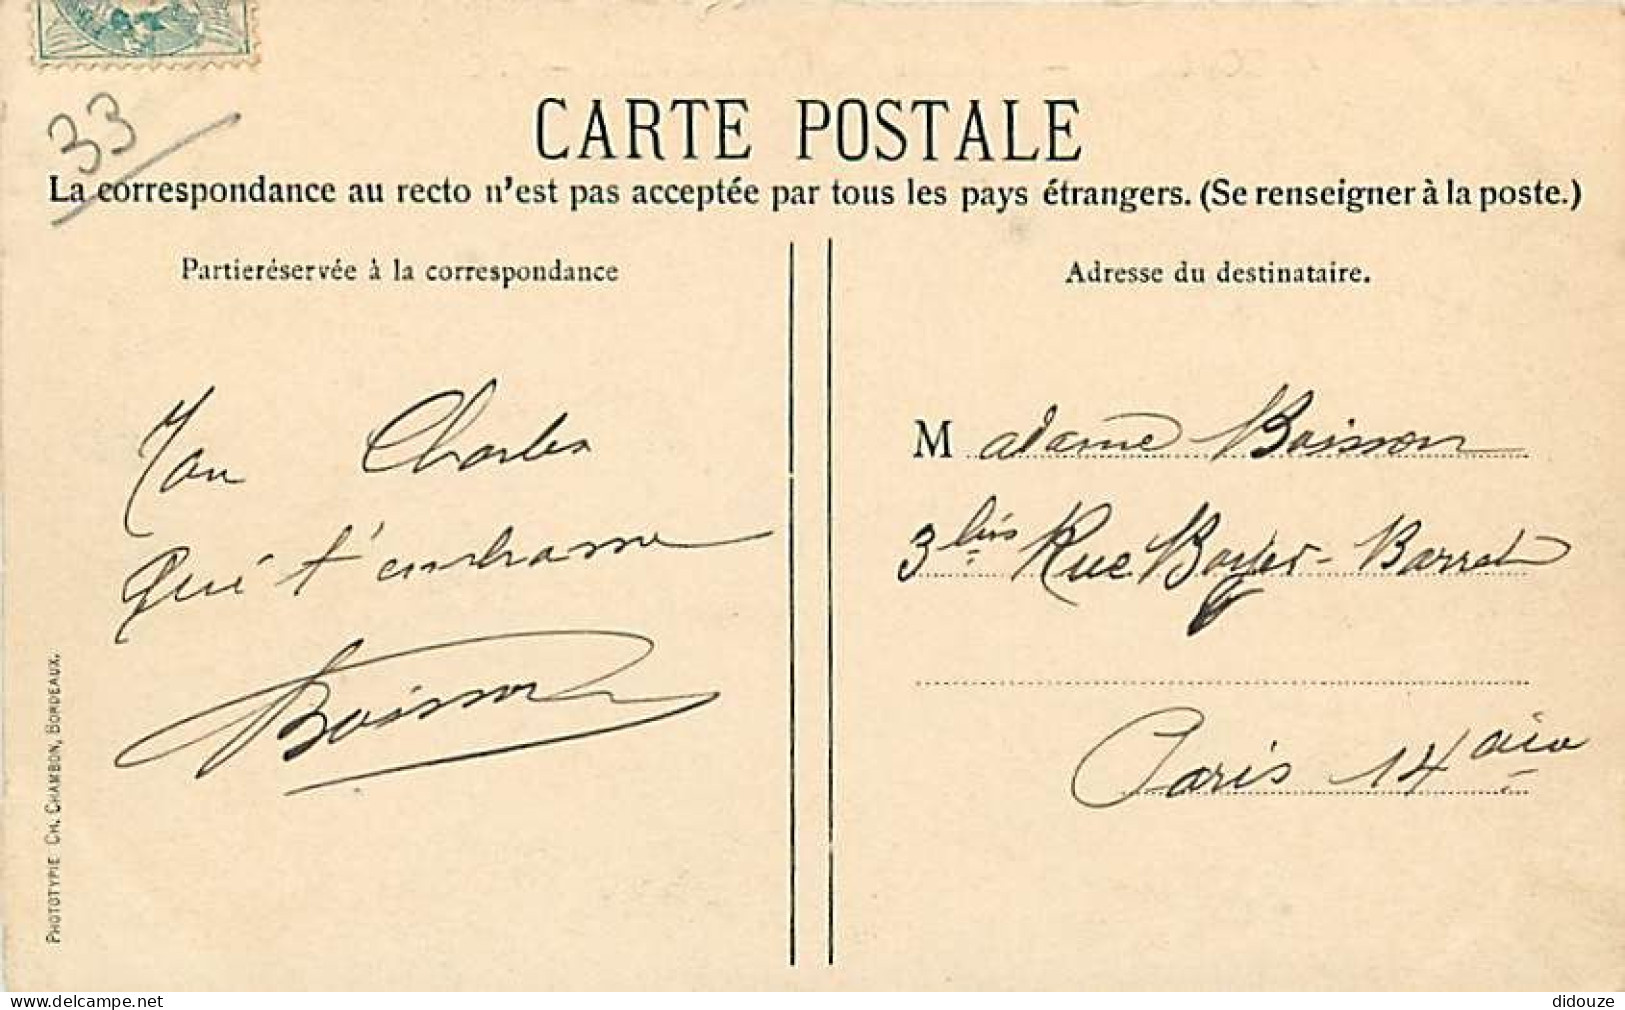 33
CARTE POSTALE
La correspondance au recto n'est pas acceptée par tous les pays étrangers. (Se renseigner à la poste.)
Partieréservée à la correspondance
Ton Charles
Qui t'embrasse
Boisson
PHOTOTYPIE CH. CHAMBON, BORDEAUX.
Adresse du destinataire.
Madame Boisson
3 bis Rue Boyer-Barret
Paris 14
delcampe.net
didouze